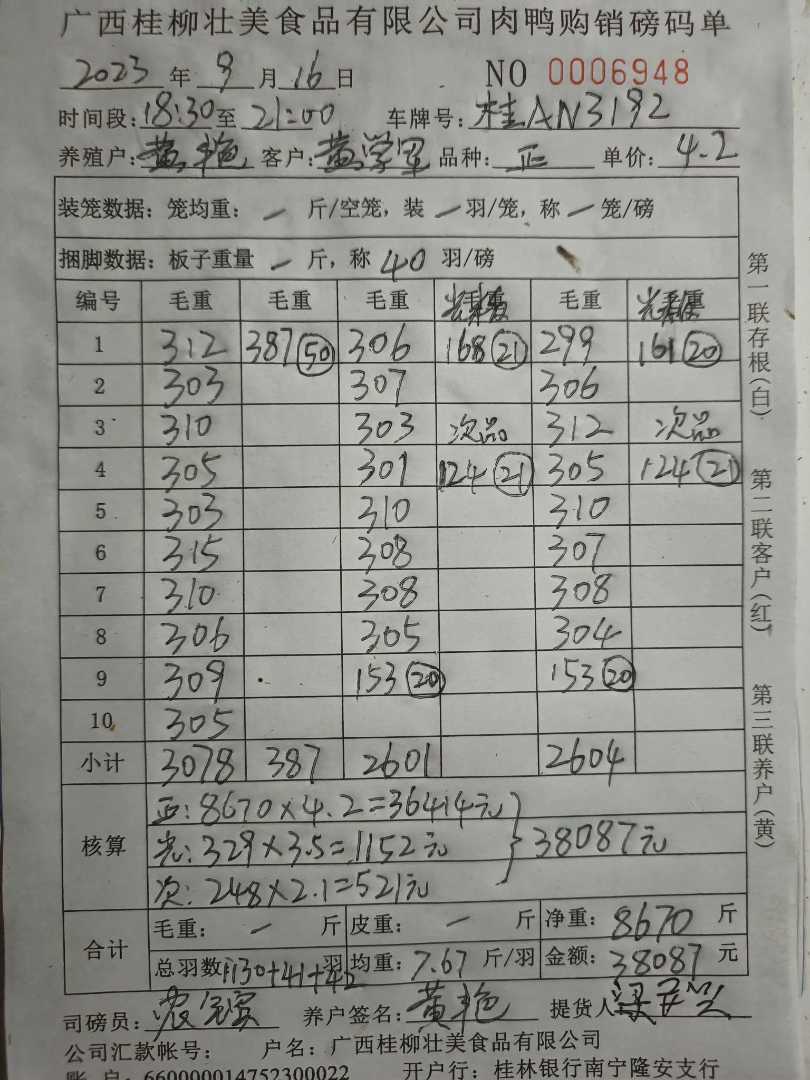 广西桂柳壮美食品有限公司肉鸭购销磅码单
2023 年 9 月 16 日 NO 0006948
时间段: 18:30 至 21:00 车牌号: 桂AN3192
养殖户: 黄艳 客户: 黄学军 品种: 正 单价: 4.2
装笼数据: 笼均重: — 斤/空笼, 装 — 羽/笼, 称 — 笼/磅
捆脚数据: 板子重量 — 斤, 称 40 羽/磅
编号 毛重 毛重 毛重 毛重
1 312 387 (50) 306 168 (21) 299 161 (20)
2 303 307 306
3 310 303 次品 312 次品
4 305 301 124 (21) 305 124 (21)
5 303 310 310
6 315 308 307
7 310 308 308
8 306 305 304
9 309 153 (20) 153 (20)
10 305
小计 3078 387 2601 2604
核算
正: 8670×4.2=36414元
光: 329×3.5=1152元 } 38087元
次: 248×2.1=521元
合计
毛重: — 斤 皮重: — 斤 净重: 8670 斤
总羽数 1130+41+42 羽 均重: 7.67 斤/羽 金额: 38087 元
司磅员: 养户签名: 黄艳 提货人
公司汇款帐号: 户名: 广西桂柳壮美食品有限公司
账 户: 660000014752300022 开户行: 桂林银行南宁隆安支行
第一联存根(白)
第二联客户(红)
第三联养户(黄)